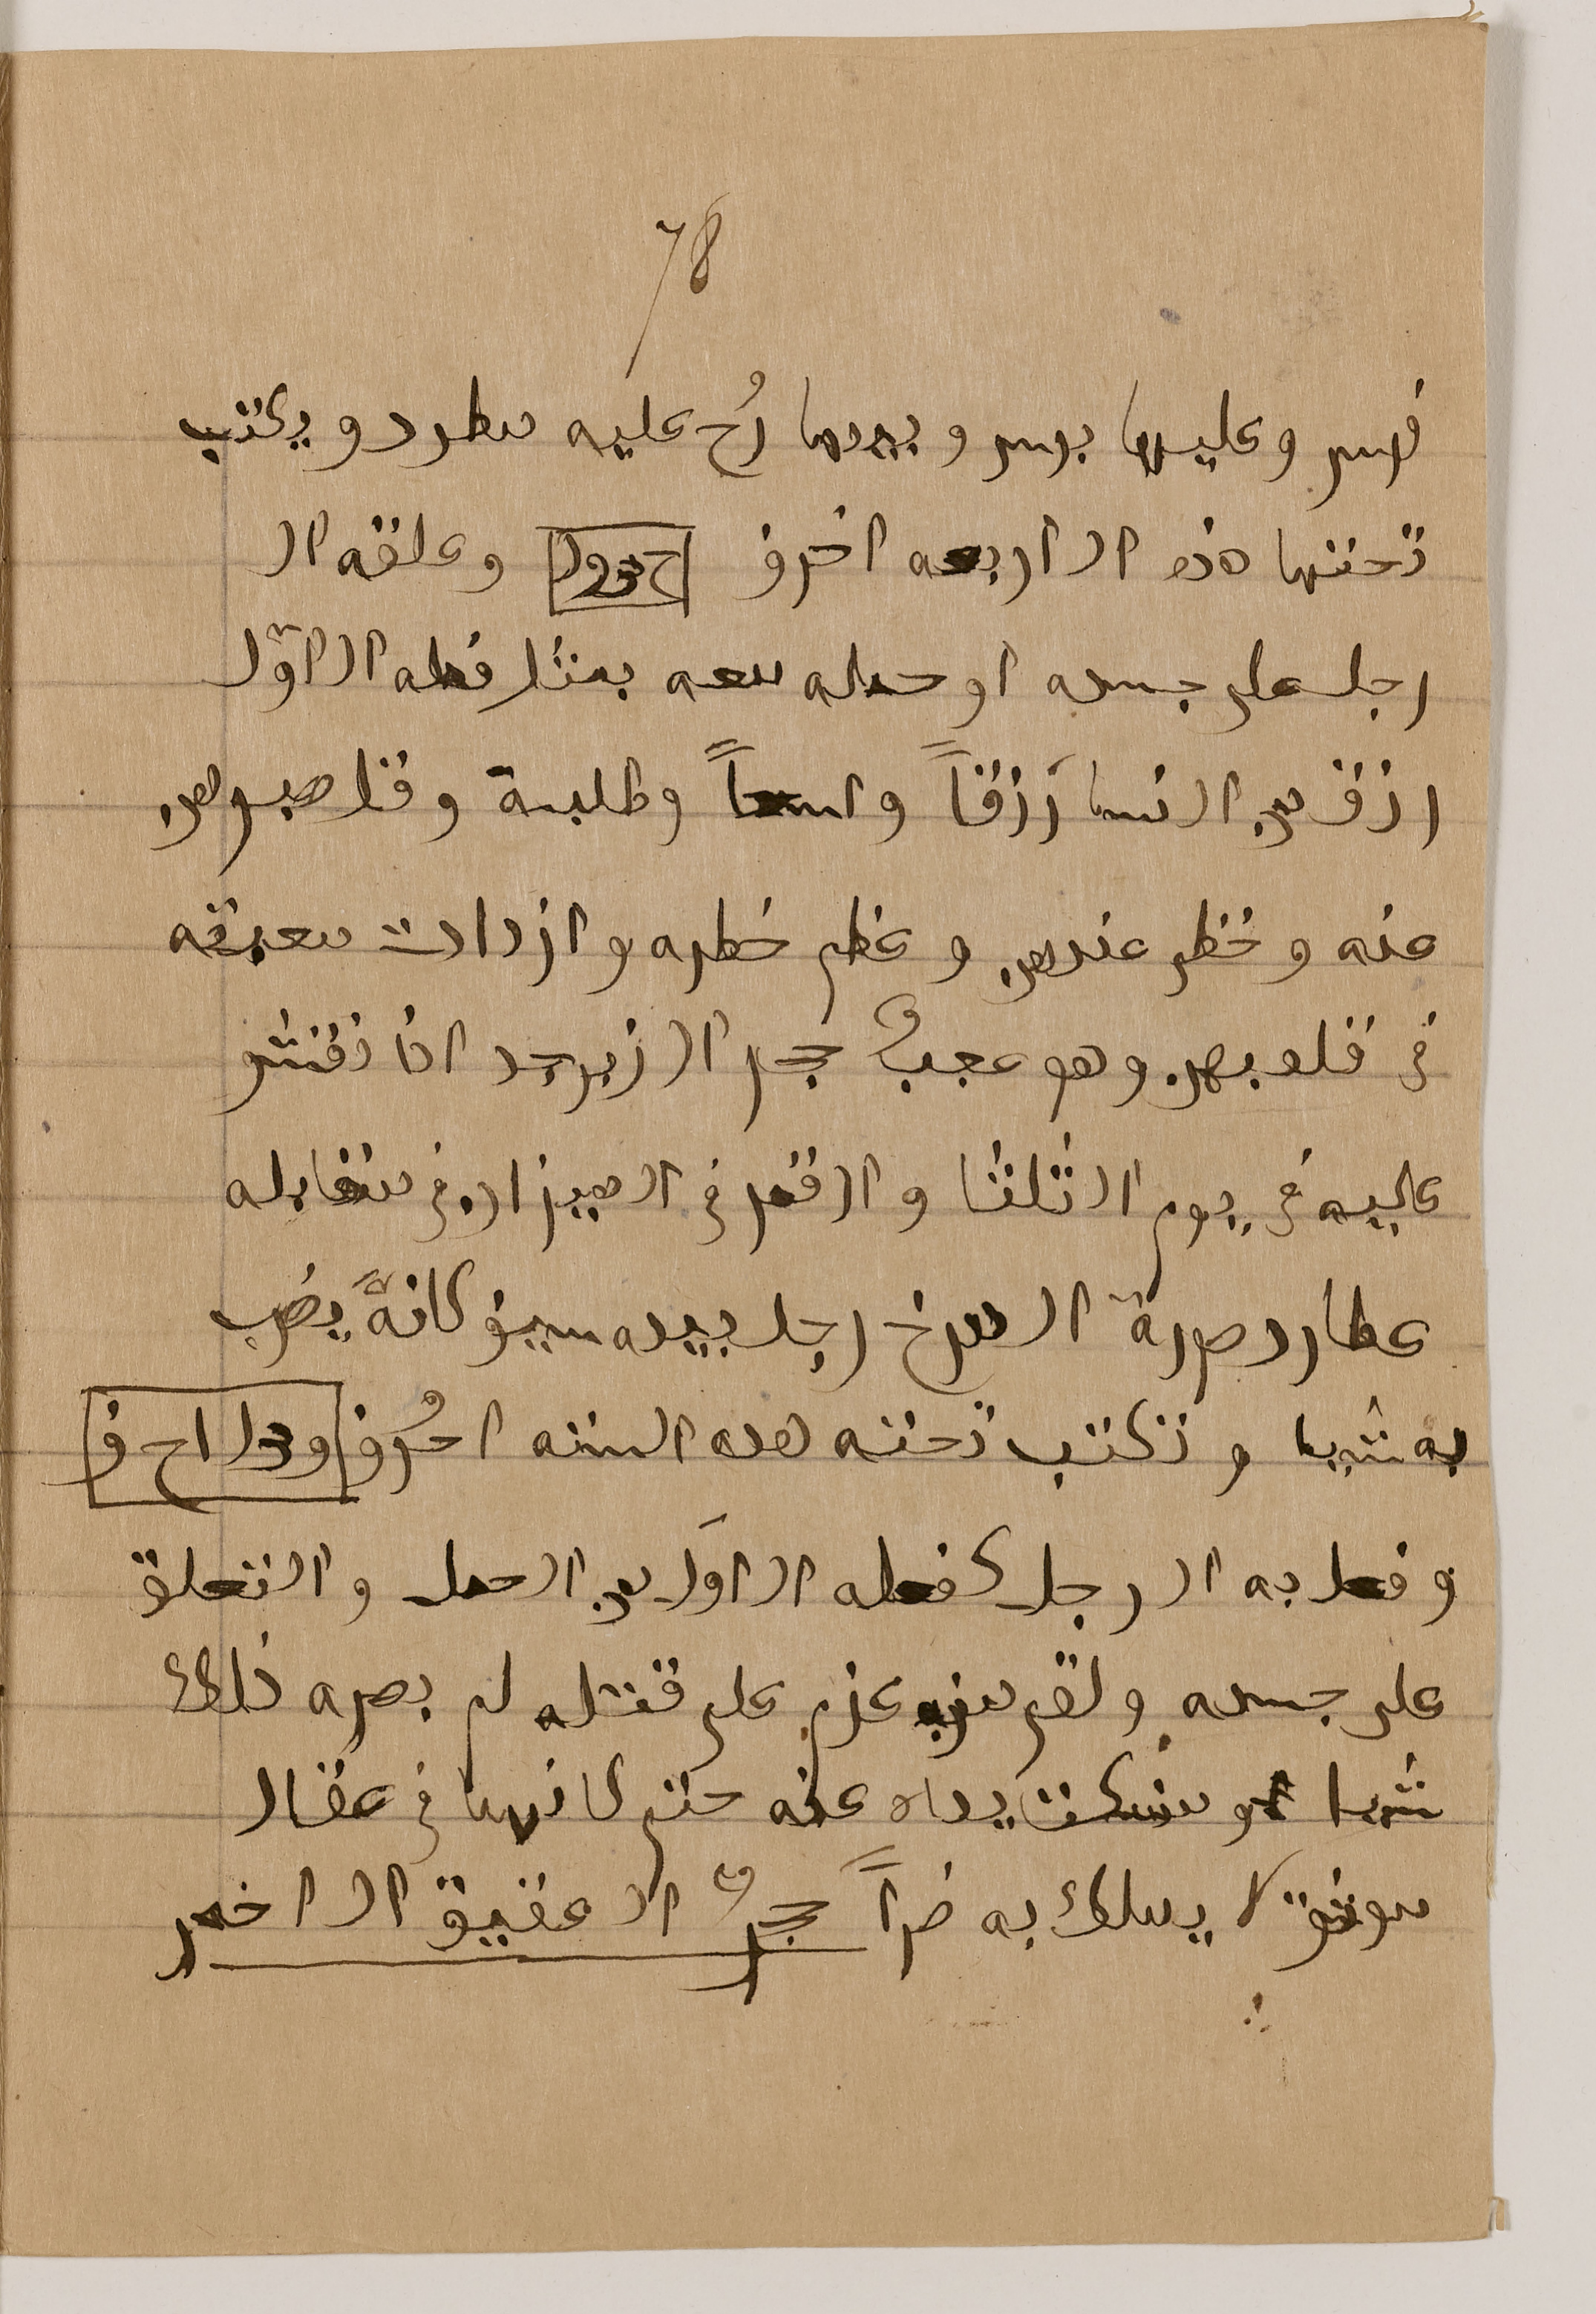 78
فرس وعليها برس وبيدها رُمح عليه مطرد ويكتب
تحتها هذه الاربعه احرف وعلقه ال
رجل على جسده او حمله معه بمثل فعله الاوّل
رزق من النسا رزقاً واسعاً وطلبنه وقل صبرهن
عنه وحظى عندهن وعظم خطره وازدادت معرفه
فى قلوبهن وهو عجبٌ حجر الزبرجد اذا نقش
عليه فى يوم الثلثا والقمر فى الميزان فى مقابله
عطارد صورة المريخ رجل بيده سيف كانهً يضرب
به شيا وتكتب تحته هذه السته احرُف و د ا ا ح ف
وفعل به الرجل كفعله الاوَل من الحمل والتعلق
على جسده ولقى من عزم على قتله لم يضره ذلك
شيا ومسكت يداه عنه حتى كانهما فى عقال
موثق لا يملك به ضراً حجر العقيق الاحمر